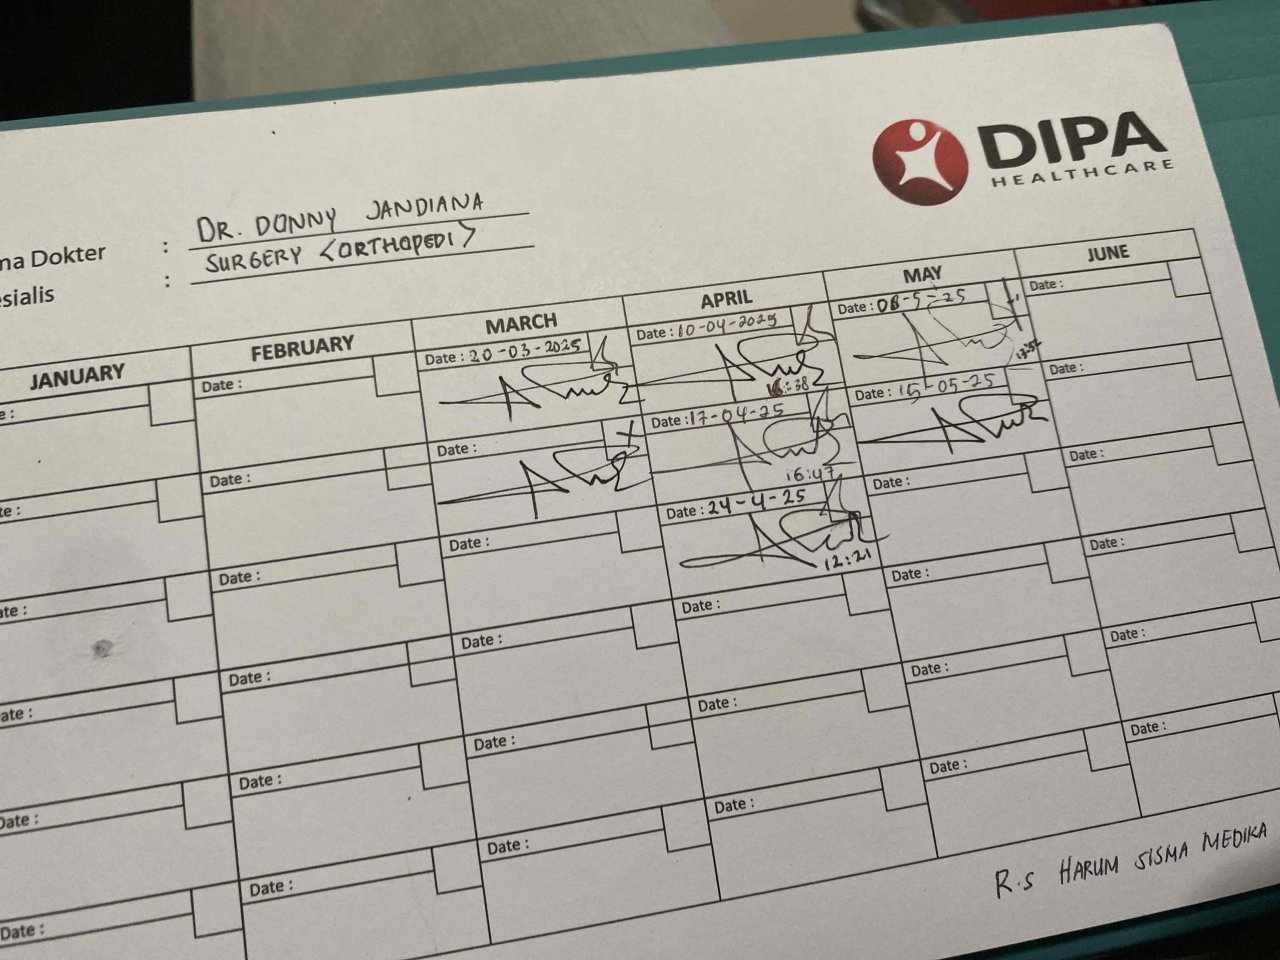 DIPA
HEALTHCARE
ma Dokter : DR. DONNY JANDIANA
esialis : SURGERY <ORTHOPEDI>
JANUARY FEBRUARY MARCH APRIL MAY JUNE
e: Date: Date: 20-03-2025 Date: 10-04-2025 Date: 08-5-25 Date:
16:38 17:52
te: Date: Date: Date: 17-04-25 Date: 15-05-25 Date:
16:47
ate: Date: Date: Date: 24-4-25 Date: Date:
12:21
ate: Date: Date: Date: Date: Date:
Date: Date: Date: Date: Date: Date:
Date: Date: Date: Date: Date: Date:
R.S HARUM SISMA MEDIKA